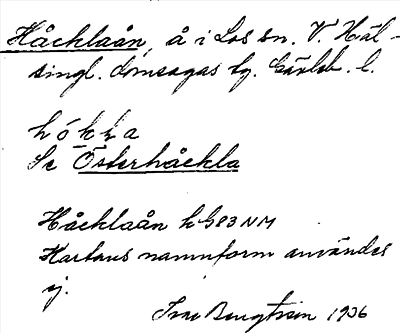 Håcklaån, å i Los sn. V. Häl-
singl. domsagas tg. Gävleb. l.
hókka
Se Österhåckla
Håcklaån k G83 NM
Kartans namnform användes
ej.
Bengtsson 1936